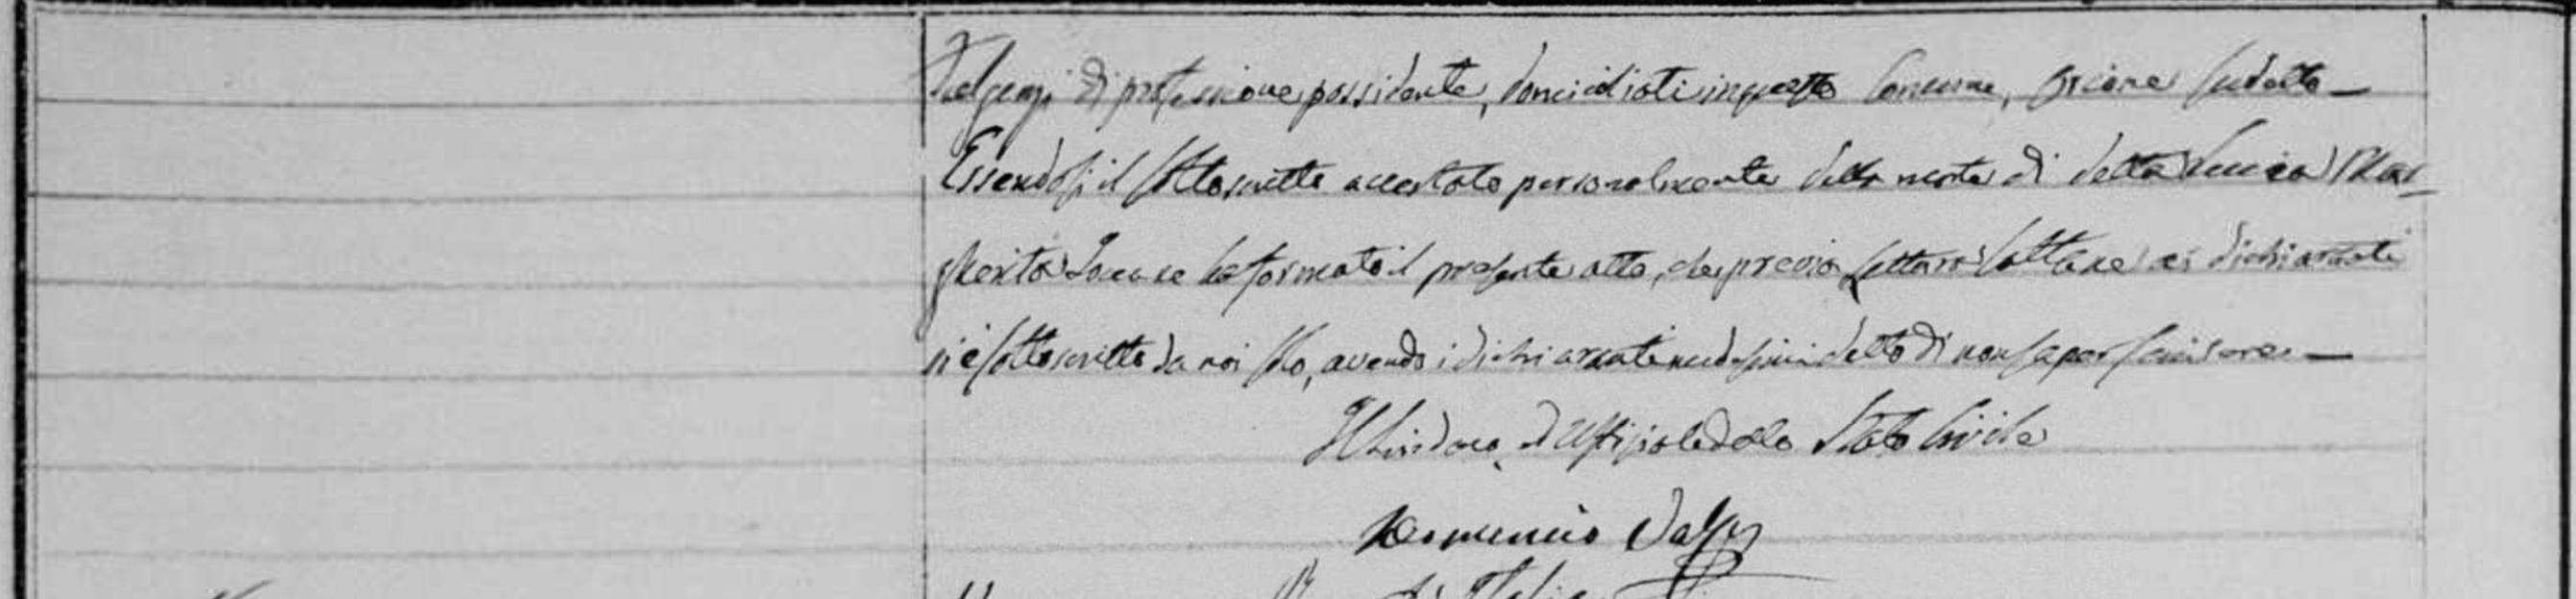 di professione possidente, domiciliati in questo Comune, sudetto —
Essendosi il sottoscritto accertato personalmente della morte di detta Lucia Mar-
gherita ne ha formato il presente atto, che previa lettura fattane ai dichiaranti
si è sottoscritto da noi solo, avendo i dichiaranti medesimi detto di non saper scrivere. —
Il Sindaco, ed Uffiziale dello Stato Civile
Domenico